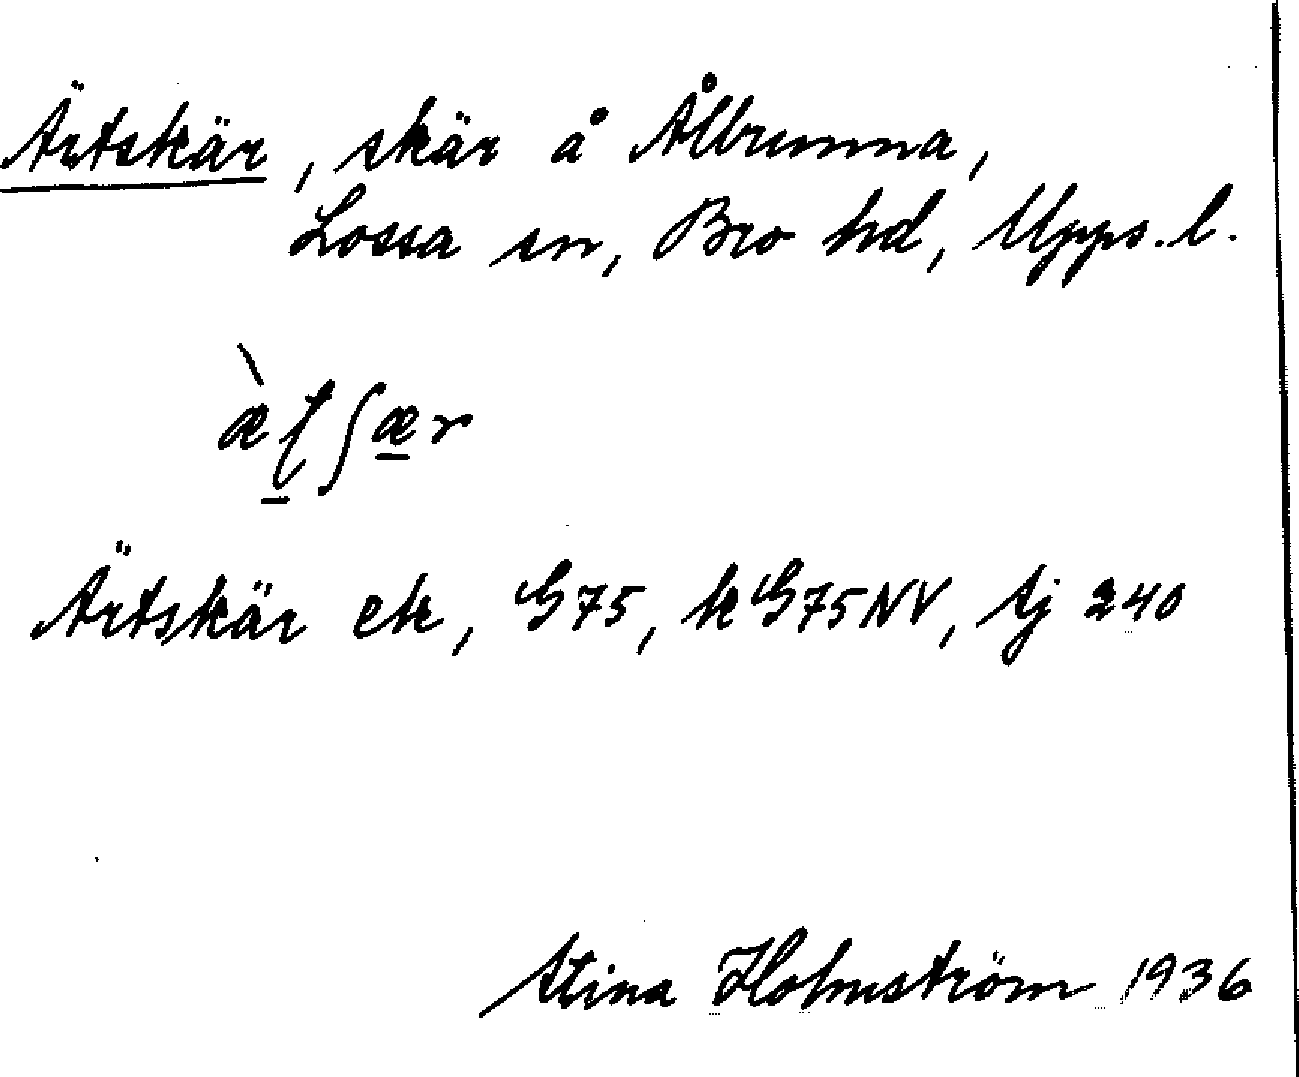 Ärtskär, skär å Ålbrunna,
Lossa sn, Bro hd, Upps. l.
Ärtskär ek, G75, kG75NV, Sj 240
Stina Holmström 1936